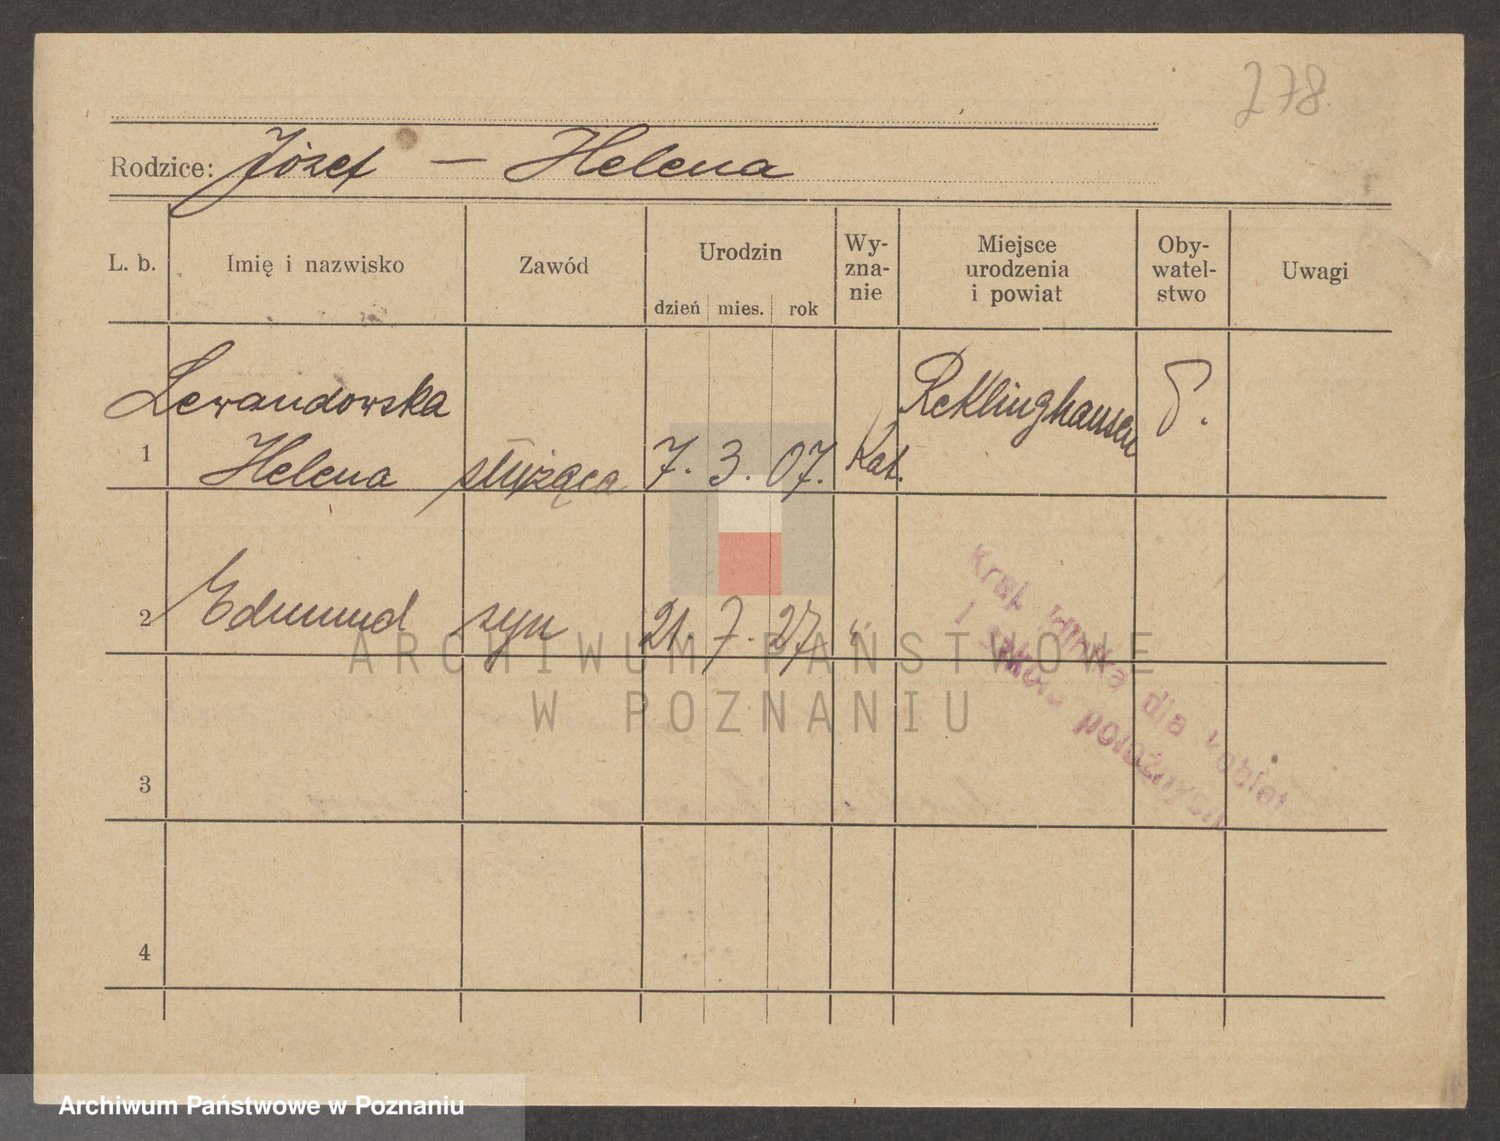 278
Rodzice: Józef — Helena
L. b. Imię i nazwisko Zawód Urodzin dzień mies. rok Wy-zna-nie Miejsce urodzenia i powiat Oby-watel-stwo Uwagi
Lewandowska
1 Helena służąca 7. 3. 07. Kat. Reklinghausen P.
2 Edmund syn 21. 7. 27 "
Kraj. klinika dla kobiet
i szkoła położnych
3
4
ARCHIWUM PAŃSTWOWE
W POZNANIU
Archiwum Państwowe w Poznaniu